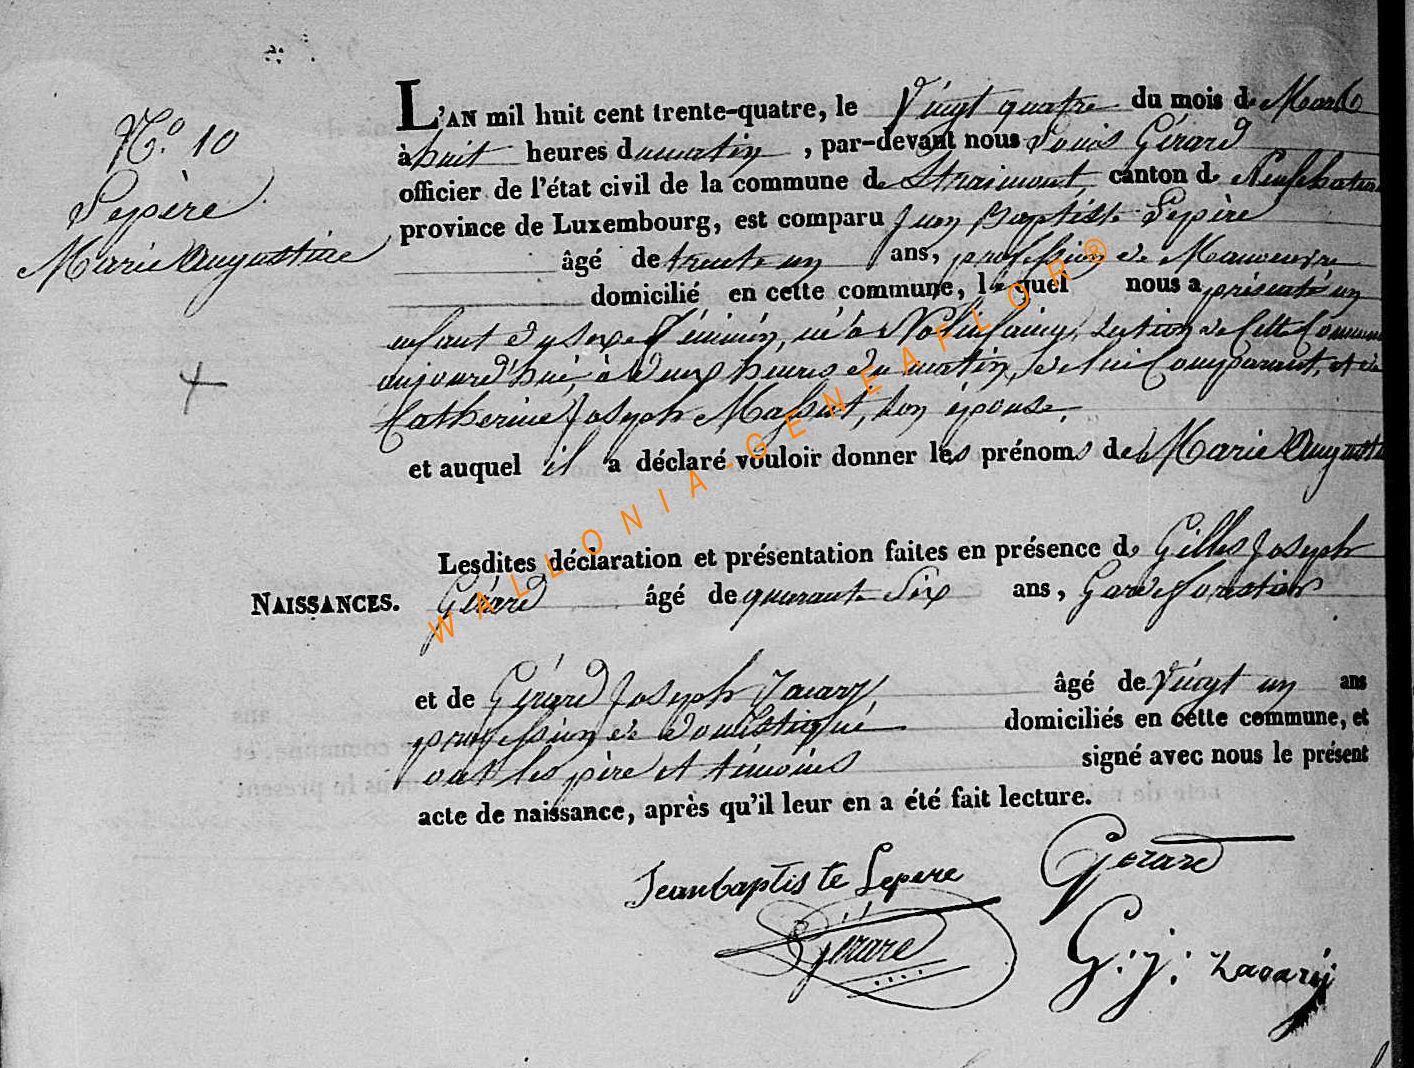 N.° 10
Lepère
Marie Augustine
L'AN mil huit cent trente-quatre, le Vingt quatre du mois de Mars
à huit heures du matin, par-devant nous Louis Gérard
officier de l'état civil de la commune de Straimont, canton de Neufchateau
province de Luxembourg, est comparu Jean Baptiste Lepère
âgé de trente un ans, profession de Manoeuvre
domicilié en cette commune, lequel nous a présenté un
enfant du sexe féminin, né à Nolinfaing, section de Cette Commune
aujourd'hui, à deux heures du matin, de lui Comparant, et de
Catherine Joseph Massut, son épouse,
et auquel il a déclaré vouloir donner les prénoms de Marie Augustine
Lesdites déclaration et présentation faites en présence de Gilles Joseph
NAISSANCES. Gérard âgé de quarante six ans, Garde forestier
et de Gérard Joseph Zacary âgé de Vingt un ans
profession de domestique domiciliés en cette commune, et
ont les père et témoins signé avec nous le présent
acte de naissance, après qu'il leur en a été fait lecture.
Jeanbaptiste Lepere Gerard
Gérard G: j: Zacarij
WALLONIA-GENEAFLOR®